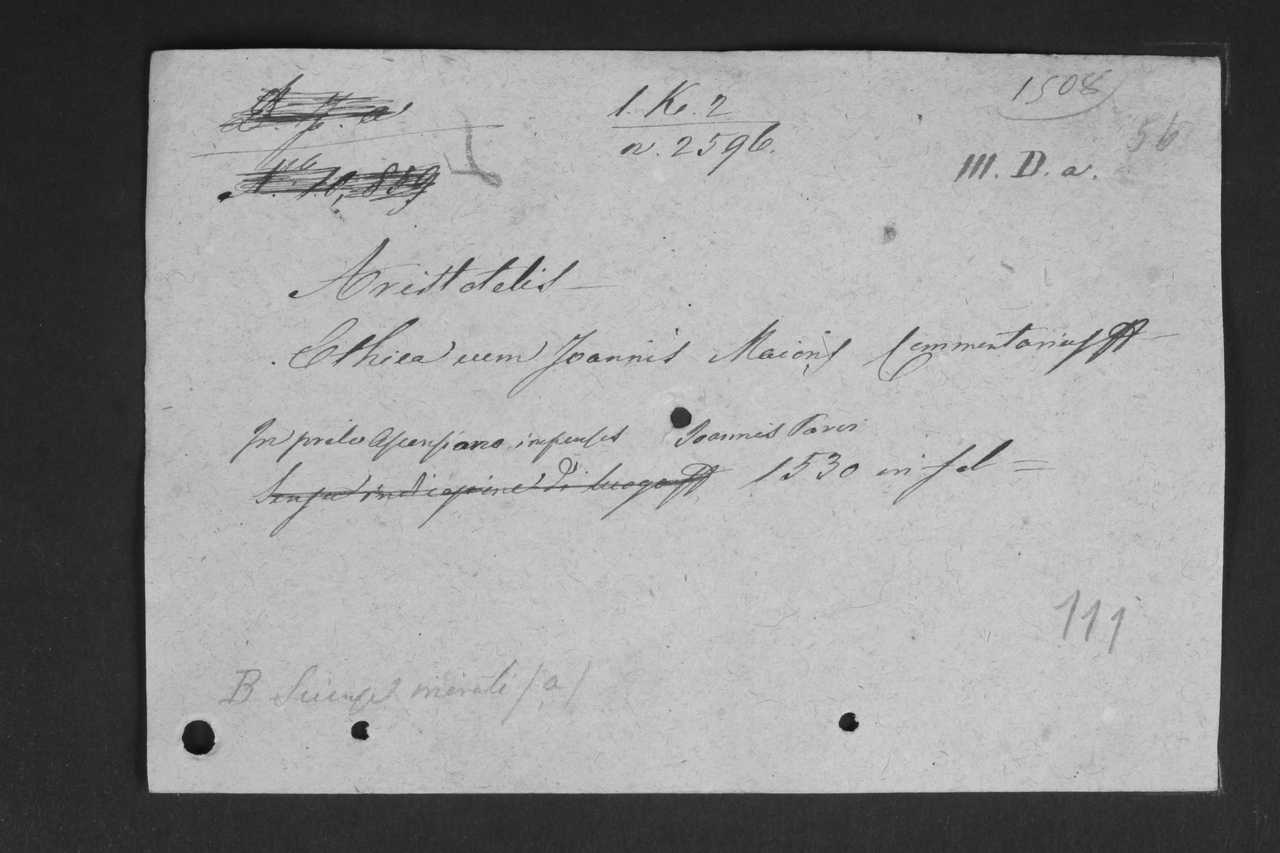 B. y. a
1. K. 2
1508
n. 2596.
56
III. D. a.
N.º 10,859
Aristotelis
Ethica cum Joannis Maioris Commentariis
In prelo Ascensiano impensis Joannis Parvi
Senza indicazione di luogo 1530 in fol =
111
B Scienze morali (a)